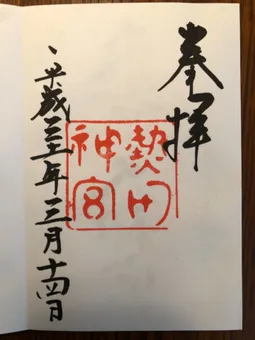 奉拝
熱田
神宮
平成三十一年三月十四日